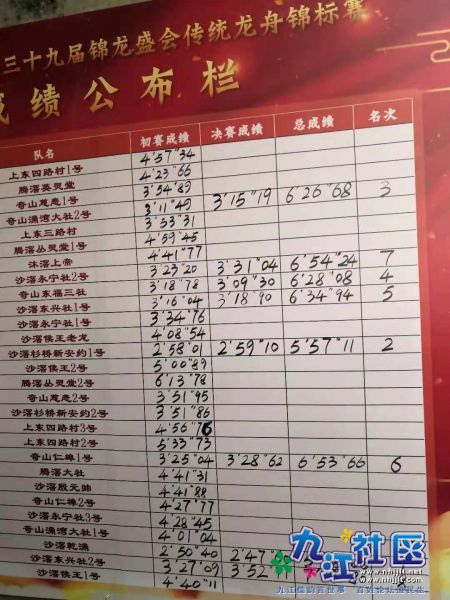 三十九届锦龙盛会传统龙舟锦标赛
成绩公布栏
队名 初赛成绩 决赛成绩 总成绩 名次
上东四路村1号 4'57"34
腾滘英灵堂 4'23"66
奇山慈悲1号 3'54"89
奇山涌湾大社2号 3'11"49 3'15"19 6'26"68 3
上东三路村 3'53"31
腾滘丛灵堂1号 4'59"45
沐滘上帝 4'41"77
沙滘永宁社2号 3'23"20 3'31"04 6'54"24 7
奇山东福三社 3'18"78 3'09"30 6'28"08 4
沙滘东兴社1号 3'16"04 3'18"90 6'34"94 5
沙滘永宁社1号 3'34"76
沙滘侯王老龙 4'08"54
沙滘杉桥新安约1号 2'58"01 2'59"10 5'57"11 2
沙滘侯王2号 5'00"89
腾滘丛灵堂2号 6'13"78
奇山慈悲2号 3'51"95
沙滘杉桥新安约2号 3'51"86
上东四路村3号 4'56"76
上东四路村2号 5'33"73
奇山仁埠1号 3'25"04 3'28"62 6'53"66 6
腾滘大社 4'41"31
沙滘殷元帅 4'41"88
奇山仁埠2号 4'27"77
沙滘永宁社3号 4'28"45
奇山涌湾大社1号 4'01"04
沙滘乾涌 2'50"40 2'47"
沙滘东兴社2号 3'27"09 3'52
沙滘侯王1号 4'40"11
九江社区
www.nhjjlt.com